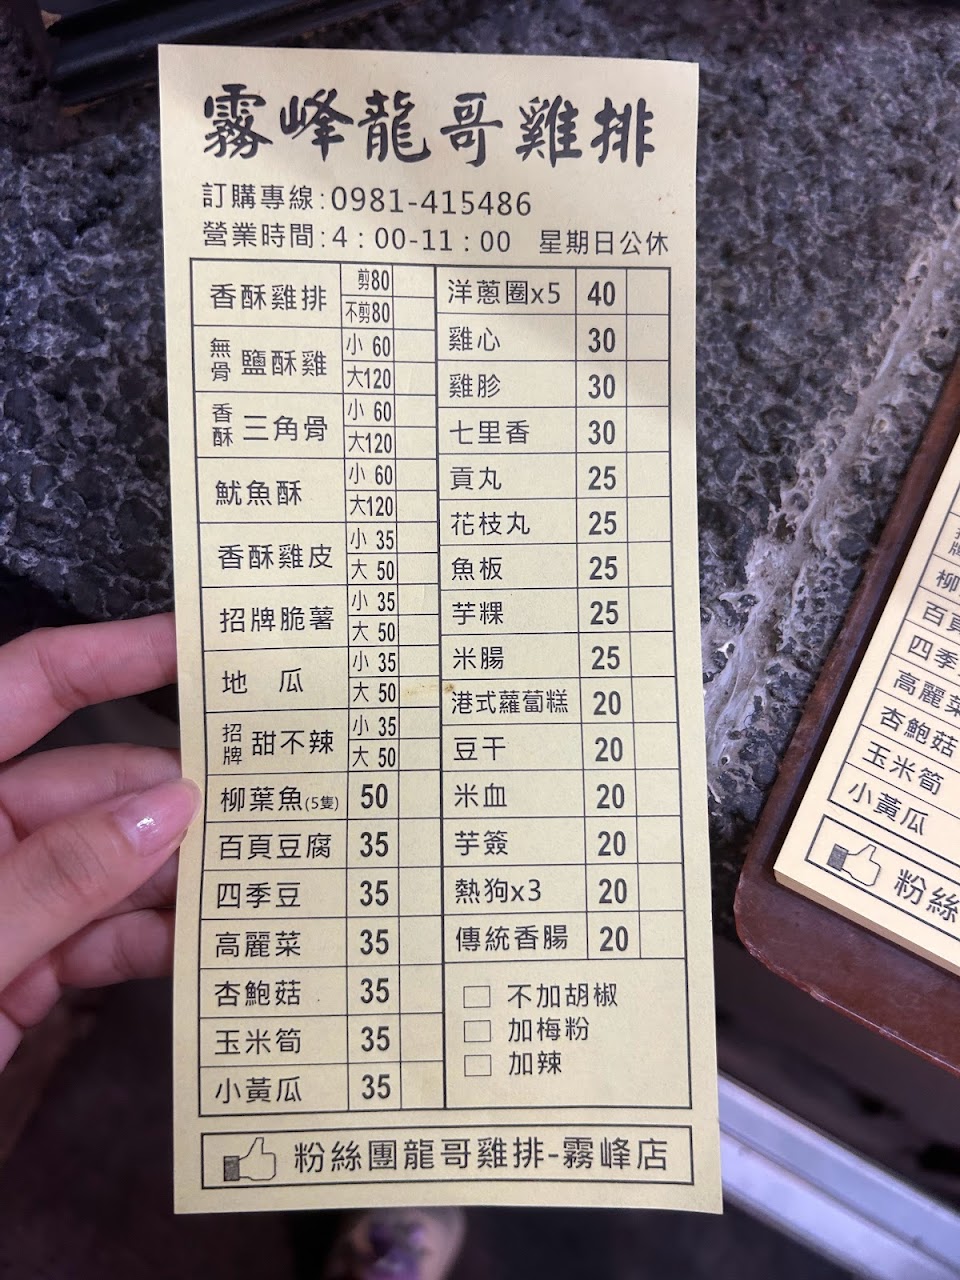 霧峰龍哥雞排
訂購專線:0981-415486
營業時間:4:00-11:00 星期日公休
香酥雞排 剪80
不剪80
無骨 鹽酥雞 小 60
大120
香酥 三角骨 小 60
大120
魷魚酥 小 60
大120
香酥雞皮 小 35
大 50
招牌脆薯 小 35
大 50
地 瓜 小 35
大 50
招牌 甜不辣 小 35
大 50
柳葉魚(5隻) 50
百頁豆腐 35
四季豆 35
高麗菜 35
杏鮑菇 35
玉米筍 35
小黃瓜 35
洋蔥圈x5 40
雞心 30
雞胗 30
七里香 30
貢丸 25
花枝丸 25
魚板 25
芋粿 25
米腸 25
港式蘿蔔糕 20
豆干 20
米血 20
芋簽 20
熱狗x3 20
傳統香腸 20
□ 不加胡椒
□ 加梅粉
□ 加辣
粉絲團龍哥雞排-霧峰店
柳
百頁
四季
高麗菜
杏鮑菇
玉米筍
小黃瓜
粉絲